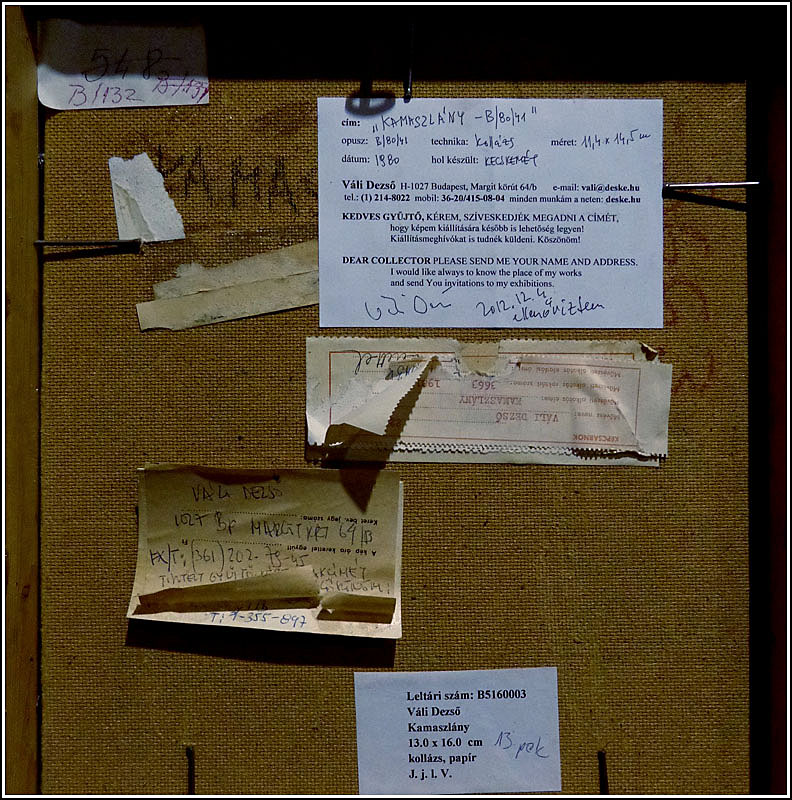 548
B/132 B/131
KAMA
cím: „KAMASZLÁNY – B/80/41"
opusz: B/80/41 technika: kollázs méret: 11,4 x 14,5 cm
dátum: 1980 hol készült: KECSKEMÉT
Váli Dezső H-1027 Budapest, Margit körút 64/b e-mail: vali@deske.hu
tel.: (1) 214-8022 mobil: 36-20/415-08-04 minden munkám a neten: deske.hu
KEDVES GYŰJTŐ, KÉREM, SZÍVESKEDJÉK MEGADNI A CÍMÉT,
hogy képem kiállítására később is lehetőség legyen!
Kiállításmeghívókat is tudnék küldeni. Köszönöm!
DEAR COLLECTOR PLEASE SEND ME YOUR NAME AND ADDRESS.
I would like always to know the place of my works
and send You invitations to my exhibitions.
2012.12.4
ellenőriztem
KÉPCSARNOK
Művész neve: VÁLI DEZSŐ
Művészi alkotás címe: KAMASZLÁNY
Művészi alkotás raktári száma: 3663
VÁLI DEZSŐ
Keret bev. jegy száma:
1027 BP MARGIT KRT 64/B
A kép ára kerettel együtt Ft
FX/T: (361) 202-79-45
TISZTELT GYŰJTŐ
T: 1-355-897
Leltári szám: B5160003
Váli Dezső
Kamaszlány
13.0 x 16.0 cm
kollázs, papír
J. j. l. V.
13. pak